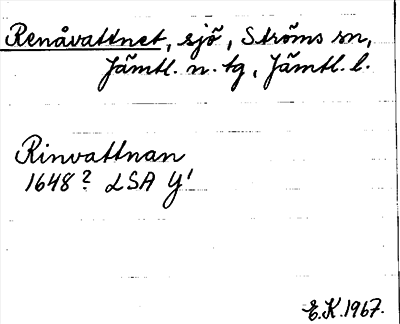 Renåvattnet, sjö, Ströms sn,
Jämtl. n. tg, Jämtl. l.
Rinvattnan
1648? LSA Y'
E.K.1967.